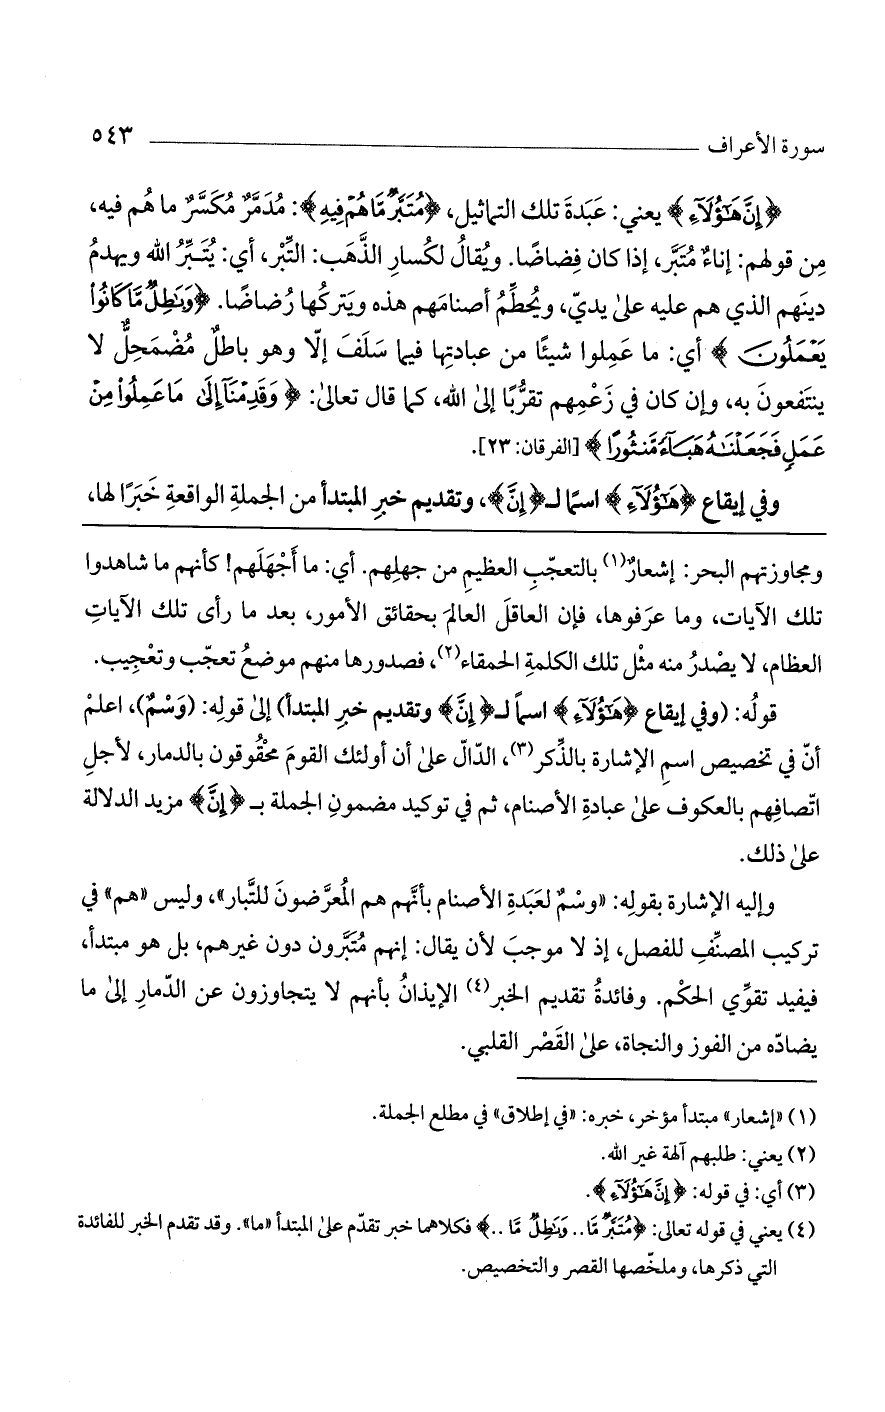 سورة الأعراف ٥٤٣
﴿إِنَّ هَٰٓؤُلَآءِ﴾ يعني: عَبَدةَ تلك التماثيل، ﴿مُتَبَّرٌ مَّا هُمْ فِيهِ﴾: مُدَمَّرٌ مُكَسَّرٌ ما هُم فيه،
مِن قولهم: إناءٌ مُتَبَّر، إذا كان فِضاضًا. ويُقالُ لكُسارِ الذَّهَب: التِّبْر، أي: يُتَبِّرُ الله ويهدِمُ
دينَهم الذي هم عليه علىٰ يديّ، ويُحطِّمُ أصنامَهم هذه ويَتركُها رُضاضًا. ﴿وَبَٰطِلٌ مَّا كَانُوا۟
يَعْمَلُونَ﴾ أي: ما عَمِلوا شيئًا من عبادتِها فيما سَلَفَ إلّا وهو باطلٌ مُضْمَحِلٌّ لا
ينتفعونَ به، وإن كان في زَعْمِهم تقرُّبًا إلىٰ الله، كما قال تعالىٰ: ﴿وَقَدِمْنَآ إِلَىٰ مَا عَمِلُوا۟ مِنْ
عَمَلٍ فَجَعَلْنَٰهُ هَبَآءً مَّنثُورًا﴾ [الفرقان: ٢٣].
وفي إيقاع ﴿هَٰٓؤُلَآءِ﴾ اسمًا لـ﴿إِنَّ﴾، وتقديم خبرِ المبتدأ من الجملةِ الواقعةِ خَبَرًا لها،
ومجاوزتهم البحر: إشعارٌ(١) بالتعجّبِ العظيمِ من جهلِهم. أي: ما أَجْهَلَهم! كأنهم ما شاهدوا
تلك الآيات، وما عرَفوها، فإن العاقلَ العالمَ بحقائق الأمور، بعد ما رأى تلك الآياتِ
العظام، لا يصْدرُ منه مثْل تلك الكلمةِ الحمقاء(٢)، فصدورها منهم موضعُ تعجّب وتعْجِيب.
قولُه: (وفي إيقاع ﴿هَٰٓؤُلَآءِ﴾ اسماً لـ﴿إِنَّ﴾ وتقديم خبرِ المبتدأ) إلىٰ قولِه: (وَسْمٌ)، اعلمْ
أنّ في تخصيص اسمِ الإشارة بالذِّكر(٣)، الدّالّ علىٰ أن أولئك القومَ محْقُوقون بالدمار، لأجلِ
اتّصافِهم بالعكوف علىٰ عبادةِ الأصنام، ثم في توكيد مضمونِ الجملة بـ﴿إِنَّ﴾ مزيد الدلالة
علىٰ ذلك.
وإليه الإشارة بقولِه: «وسْمٌ لعَبَدةِ الأصنام بأنَّهم هم المُعرَّضونَ للتَّبار»، وليس «هم» في
تركيب المصنِّفِ للفصل، إذ لا موجبَ لأن يقال: إنهم مُتَبَّرون دون غيرهم، بل هو مبتدأ،
فيفيد تقوّي الحكْم. وفائدةُ تقديم الخبر(٤) الإيذانُ بأنهم لا يتجاوزون عن الدّمارِ إلىٰ ما
يضادّه من الفوز والنجاة، علىٰ القَصْر القلبي.
(١) «إشعار» مبتدأ مؤخر، خبره: «في إطلاق» في مطلع الجملة.
(٢) يعني: طلبهم آلهة غير الله.
(٣) أي: في قوله: ﴿إِنَّ هَٰٓؤُلَآءِ﴾.
(٤) يعني في قوله تعالى: ﴿مُتَبَّرٌ مَّا.. وَبَٰطِلٌ مَّا ..﴾ فكلاهما خبر تقدّم علىٰ المبتدأ «ما». وقد تقدم الخبر للفائدة
التي ذكرها، وملخّصها القصر والتخصيص.